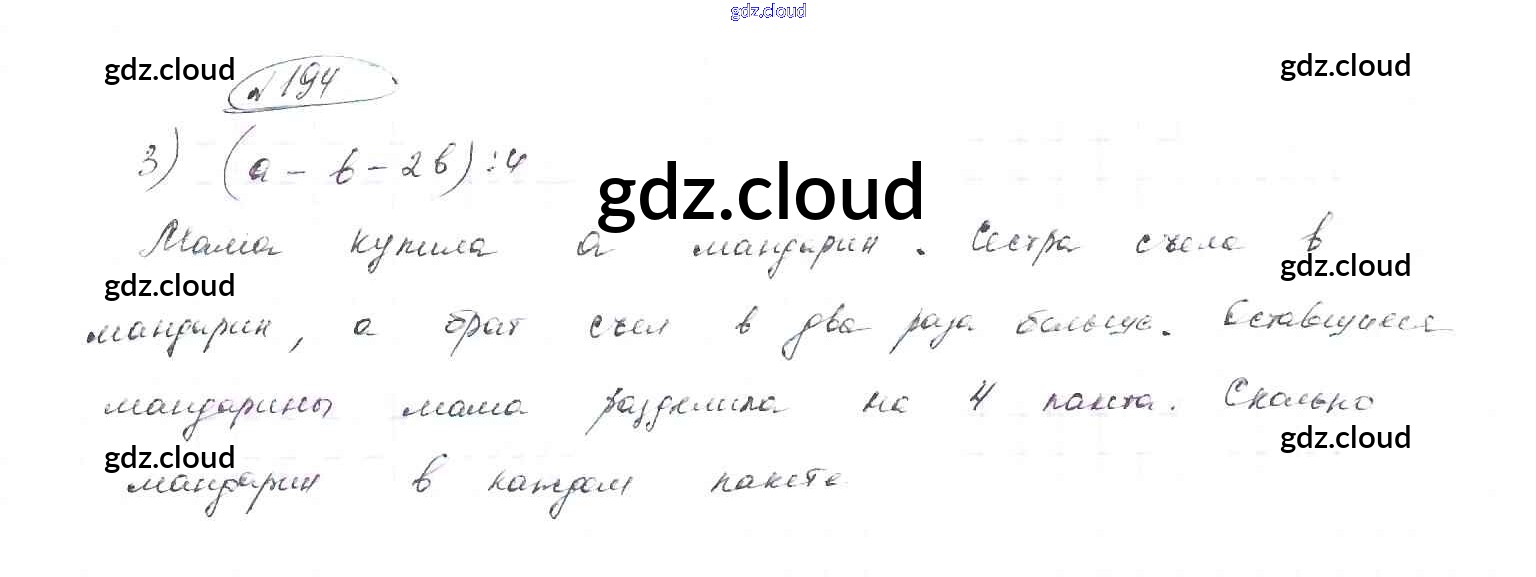 gdz.cloud
gdz.cloud № 194 gdz.cloud
3) (a - b - 2b) : 4
gdz.cloud
Мама купила a мандарин. Сестра съела b
gdz.cloud gdz.cloud
мандарин, а брат съел в два раза больше. Оставшиеся
мандарины мама разделила на 4 пакета. Сколько
gdz.cloud gdz.cloud
мандарин в каждом пакете